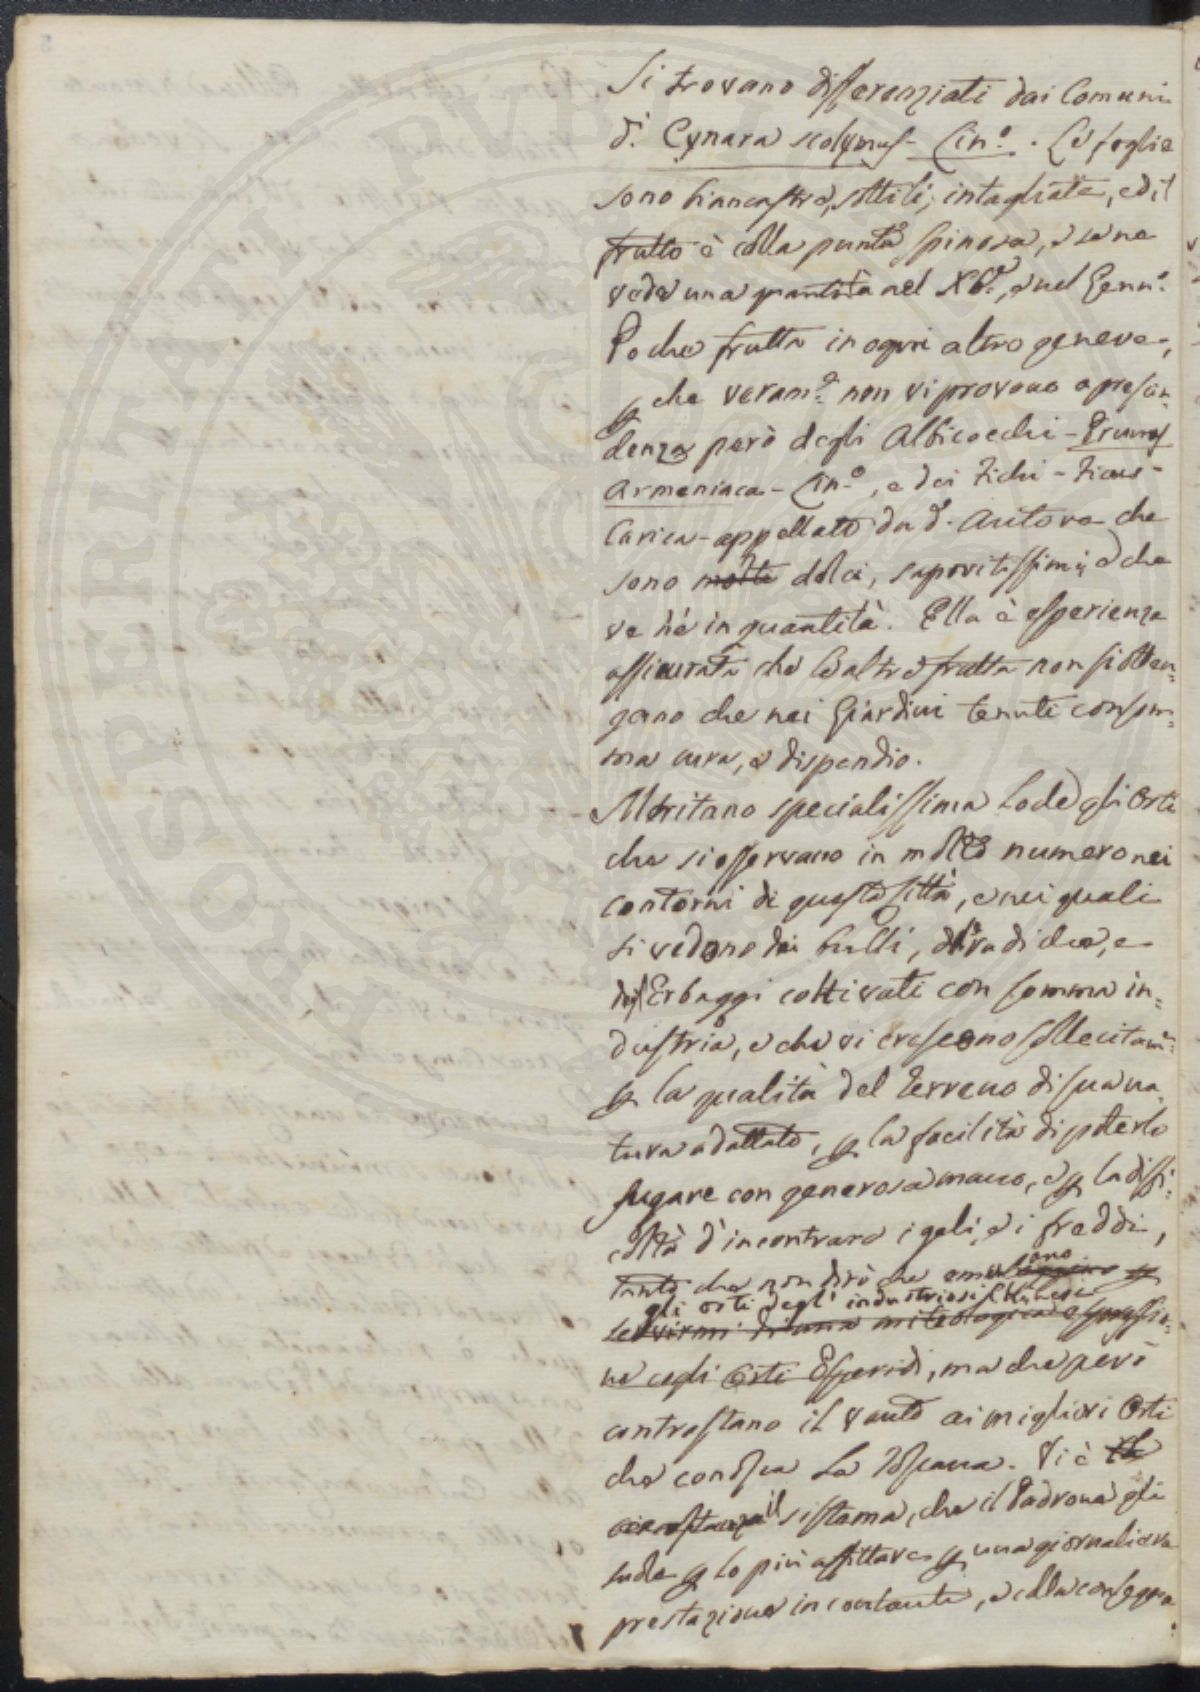 Si trovano differenziati dai Comuni
di Cynara scolymus - Lin.° . Le foglie
sono biancastre, sottili, intagliate, ed il
frutto è colla punta spinosa, e se ne
vede una quantità nel Xb.e, e nel Genn.°
Poche frutta in ogni altro genere,
che veram.e non vi provono a prescin=
denza però degli Albicocchi - Prunus
Armeniaca - Lin.°, e dei Fichi - Ficus -
Carica - appellato da d.° Autore che
sono molto dolci, saporitissimi, e che
ve n'é in quantità. Ella è esperienza
assicurata che le altre frutta non si otten=
gano che nei Giardini tenuti con som=
ma cura, e dispendio.
Meritano specialissima Lode gli Orti
che si osservano in molto numero nei
contorni di questa Città, e nei quali
si vedono dei bulbi, delle radiche, e
degl'Erbaggi coltivati con somma in=
dustria, e che vi crescono sollecitam.e
p la qualità del terreno di sua na
tura adattato, p la facilità di poterlo
sugare con generosa mano, e p la diffi=
coltà d'incontrare i geli, e i freddi,
tanto che non dirò che emulano p
gli orti degl'industriosi
servirmi di una miteologica espressio=
ne cogli Orti Esperidi, ma che però
contrastano il vanto ai migliori Orti
che conosca La Toscana. Vi è la
circostanza il sistema, che il Padrone gli
suole p lo più affittare p una giornaliera
prestazione in contante, e colla consegna